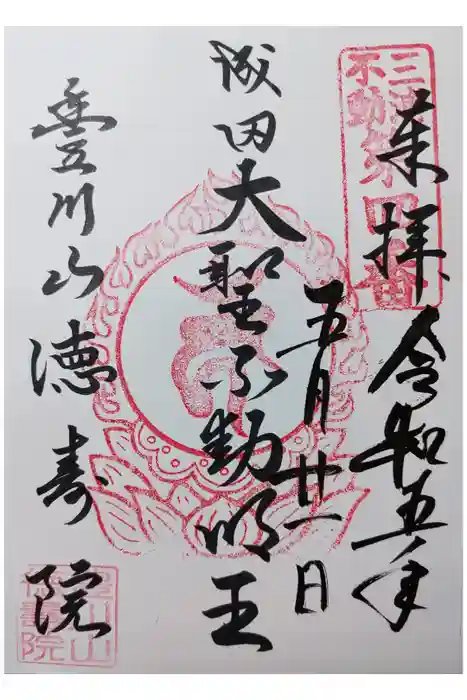 三浦不動
第四番
奉拝 令和五年
五月廿一日
成田大聖不動明王
豊川山徳寿院
豊川山
徳壽院